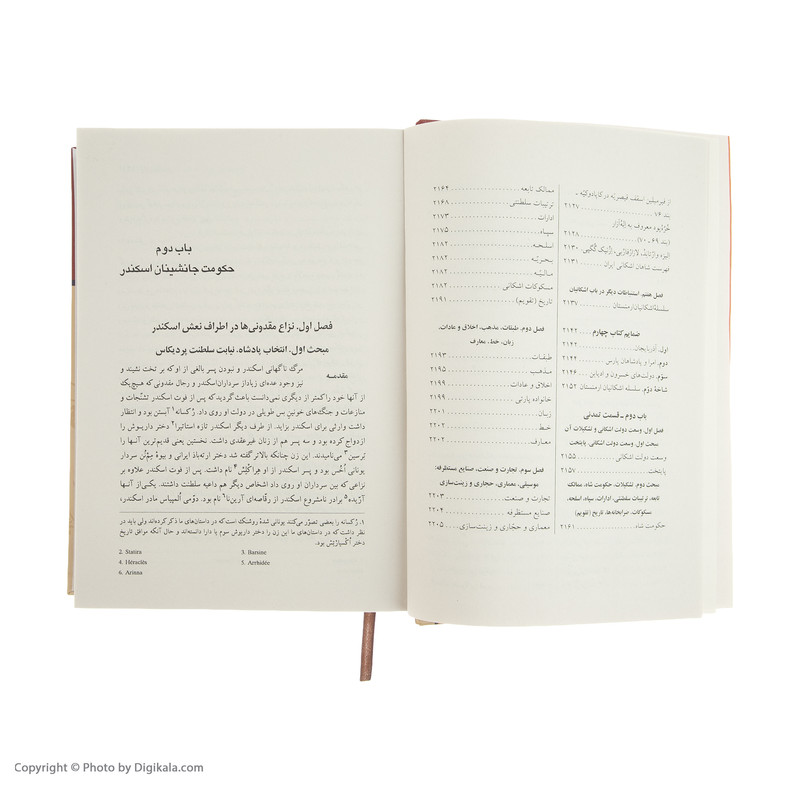 از فیرمیلین اسقف قیصریّه در کاپادوکیّه ـ
بند ۱۶ ۲۱۲۷
(بند ۶۹ ـ ۷۰) ۲۱۲۸
۲۱۳۰
فهرست شاهان اشکانی ایران ۲۱۳۱
فصل هفتم. استنباطات دیگر در باب اشکانیان
سلسلهٔ اشکانیان ارمنستان ۲۱۳۷
ضمایم کتاب چهارم ۲۱۴۲
اول. آذربایجان ۲۱۴۲
دوم. امرا و پادشاهان پارس ۲۱۴۴
سوّم. دولت‌های خسروِن و آدیابن ۲۱۴۶
شاخهٔ دوّم. سلسله اشکانیان ارمنستان ۲۱۵۲
باب دوم ـ قسمت تمدنی
فصل اول. وسعت دولت اشکانی و تشکیلات آن
مبحث اول. وسعت دولت اشکانی. پایتخت
وسعت دولت اشکانی ۲۱۵۵
پایتخت ۲۱۵۷
مبحث دوم. تشکیلات، حکومت شاه، ممالک
تابعه، ترتیبات سلطنتی، ادارات، سپاه، اسلحه،
مسکوکات، ضرابخانه‌ها، تاریخ (تقویم)
حکومت شاه ۲۱۶۱
ممالک تابعه ۲۱۶۴
ترتیبات سلطنتی ۲۱۶۸
ادارات ۲۱۷۳
سپاه ۲۱۷۵
اسلحه ۲۱۸۲
بحریّه ۲۱۸۲
مالیّه ۲۱۸۲
مسکوکات اشکانی ۲۱۸۲
تاریخ (تقویم) ۲۱۹۱
فصل دوم. طبقات، مذهب، اخلاق و عادات،
زبان، خط، معارف
طبقات ۲۱۹۳
مذهب ۲۱۹۵
اخلاق و عادات ۲۱۹۹
خانواده پارتی ۲۱۹۹
زبان ۲۲۰۱
خط ۲۲۰۲
معارف ۲۲۰۲
فصل سوم. تجارت و صنعت، صنایع مستظرفه:
موسیقی، معماری، حجاری و زینت‌سازی
تجارت و صنعت ۲۲۰۳
صنایع مستظرفه ۲۲۰۴
معماری و حجّاری و زینت‌سازی ۲۲۰۵
باب دوم
حکومت جانشینان اسکندر
فصل اول. نزاع مقدونی‌ها در اطراف نعش اسکندر
مبحث اول. انتخاب پادشاه. نیابت سلطنت پردیکاس
مقدمه
مرگ ناگهانی اسکندر و نبودن پسر بالغی از او که بر تخت نشیند و
نیز وجود عده‌ای زیاد از سرداران اسکندر و رجال مقدونی که هیچ‌یک
از آنها خود را کمتر از دیگری نمی‌دانست باعث گردید که پس از فوت اسکندر تشنّجات و
منازعات و جنگ‌های خونین بس طویلی در دولت او روی داد. رُکسانه۱ آبستن بود و انتظار
داشت وارثی برای اسکندر بزاید. از طرف دیگر اسکندر تازه استاتیرا۲ دختر داریوش را
ازدواج کرده بود و سه پسر هم از زنان غیرعقدی داشت. نخستین یعنی قدیم‌ترین آنها را
بَرسین۳ می‌نامیدند. این زن چنانکه بالاتر گفته شد دختر ارته‌باذ ایرانی و بیوه مِمْنُن سردار
یونانی اُخُس بود و پسر اسکندر از او هِراکْلِسْ۴ نام داشت. پس از فوت اسکندر علاوه بر
نزاعی که بین سرداران او روی داد اشخاص دیگر هم داعیه سلطنت داشتند. یکی از آنها
آرّیده۵ برادر نامشروع اسکندر از رقاصه‌ای آرین‌نا۶ نام بود. دوّمی اُلمپیاس مادر اسکندر،
۱. رُکسانه را بعضی تصوّر می‌کنند یونانی شدهٔ روشنک است که در داستان‌های ما ذکر کرده‌اند ولی باید در
نظر داشت که در داستان‌های ما این زن را دختر داریوش سوم یا دارا دانسته‌اند و حال آنکه موافق تاریخ
دختر اُکسیارْتِسْ بود.
2. Statira
3. Barsine
4. Héraclès
5. Arrhidée
6. Arinna
Copyright © Photo by Digikala.com